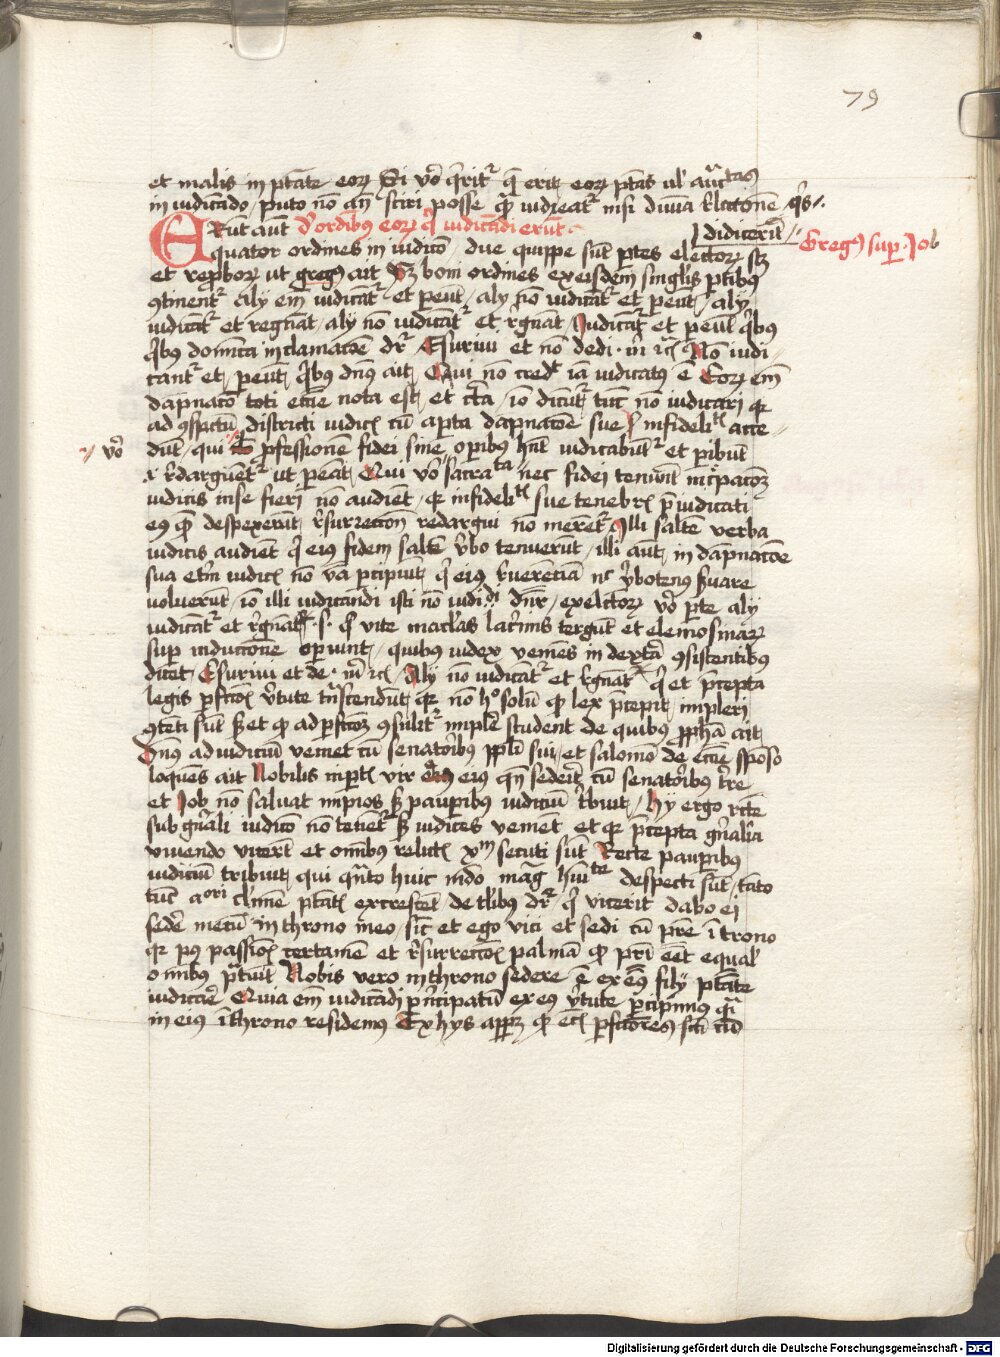 79
et malis in ptate eorum Si vero querit que erit eorum ptas vel auctas
in iudicando puto non an sciri posse quod iudicat nisi divina relatione qs
Erunt aut De ordibus eorum qui iudicandi erunt didicerit
Greg sup Job
quatuor ordines in iudicio due quippe sunt ptes electorum scz
et reproborum ut greg ait Sz boni ordines ex eisdem singlis ptibus
continent Alij em iudicant et peunt alij non iudicant et peunt alij
iudicant et regnant alij non iudicant et regnant Judicant et peunt quibus
quibus dominica inclamacione dr Esurivi et non dedi m Non iudi
cant et peunt quibus dns ait Qui non credit iam iudicatus e Eorum em
dapnato toti eccie nota est et certa io dicunt tunc non iudicari quia
ad conspectum districti iudicis cum aperta dapnatione sue infidelitatis acce
vero
dunt qui professionem fidei sine operibus hnt iudicabunt et peribunt
redarguent ut pereant Qui vero sacramenta nec fidei tenuerunt increpacionem
iudicis in se fieri non audient quia infidelitatis sue tenebris preiudicati
eius quem despexerunt resurrectione redargui non merentur Illi saltem verba
iudicis audient qui eius fidem saltem verbo tenuerunt illi aut in dapnatione
sua etni iudicis non verba percipiunt qui eius reverentiam nec verbotenus servare
voluerunt io illi iudicandi isti non iudi di dnr ex electorum vero parte alij
iudicant et regnant s qui vite maculas lacrimis tergunt et elemosinarum
sup inductione operiunt quibus iudex veniens in dextera consistentibus
dicet Esurivi et de m Alij non iudicant et regnant qui et precepta
legis perfectionis virtute transcendunt quia non hoc solum quod lex precepit impleri
contenti sunt sed et quod ad perfectionem consulit implere student de quibus propheta ait
Dns ad iudicium veniet cum senatoribus populi sui et salomon de eccie sponso
loquens ait Nobilis in portis vir eius quando sederit cum senatoribus terre
et Job non salvat impios sed pauperibus iudicium tribuit Hij ergo recte
sub generali iudicio non tenent sed iudices venient et quia precepta generalia
vivendo vicerunt et omnibus relictis xpm secuti sunt Recte pauperibus
iudicium tribuit qui quanto huic mundo magna humilitate despecti sunt tanto
tunc maiori culmine potestatis excrescent de talibus dr qui vicerit dabo ei
sedere mecum in throno meo sicut et ego vici et sedi cum patre in trono
quia post passionis certamen et resurrectionis palmam quod patri esset equalis
omnibus patuit Nobis vero in throno sedere est ex eius filij potestate
iudicare Quia em iudicandi principatum ex eius virtute percipimus quasi
in eius throno residemus Ex hys apparet quod eciam perfectiores sancti cum
Digitalisierung gefördert durch die Deutsche Forschungsgemeinschaft - DFG